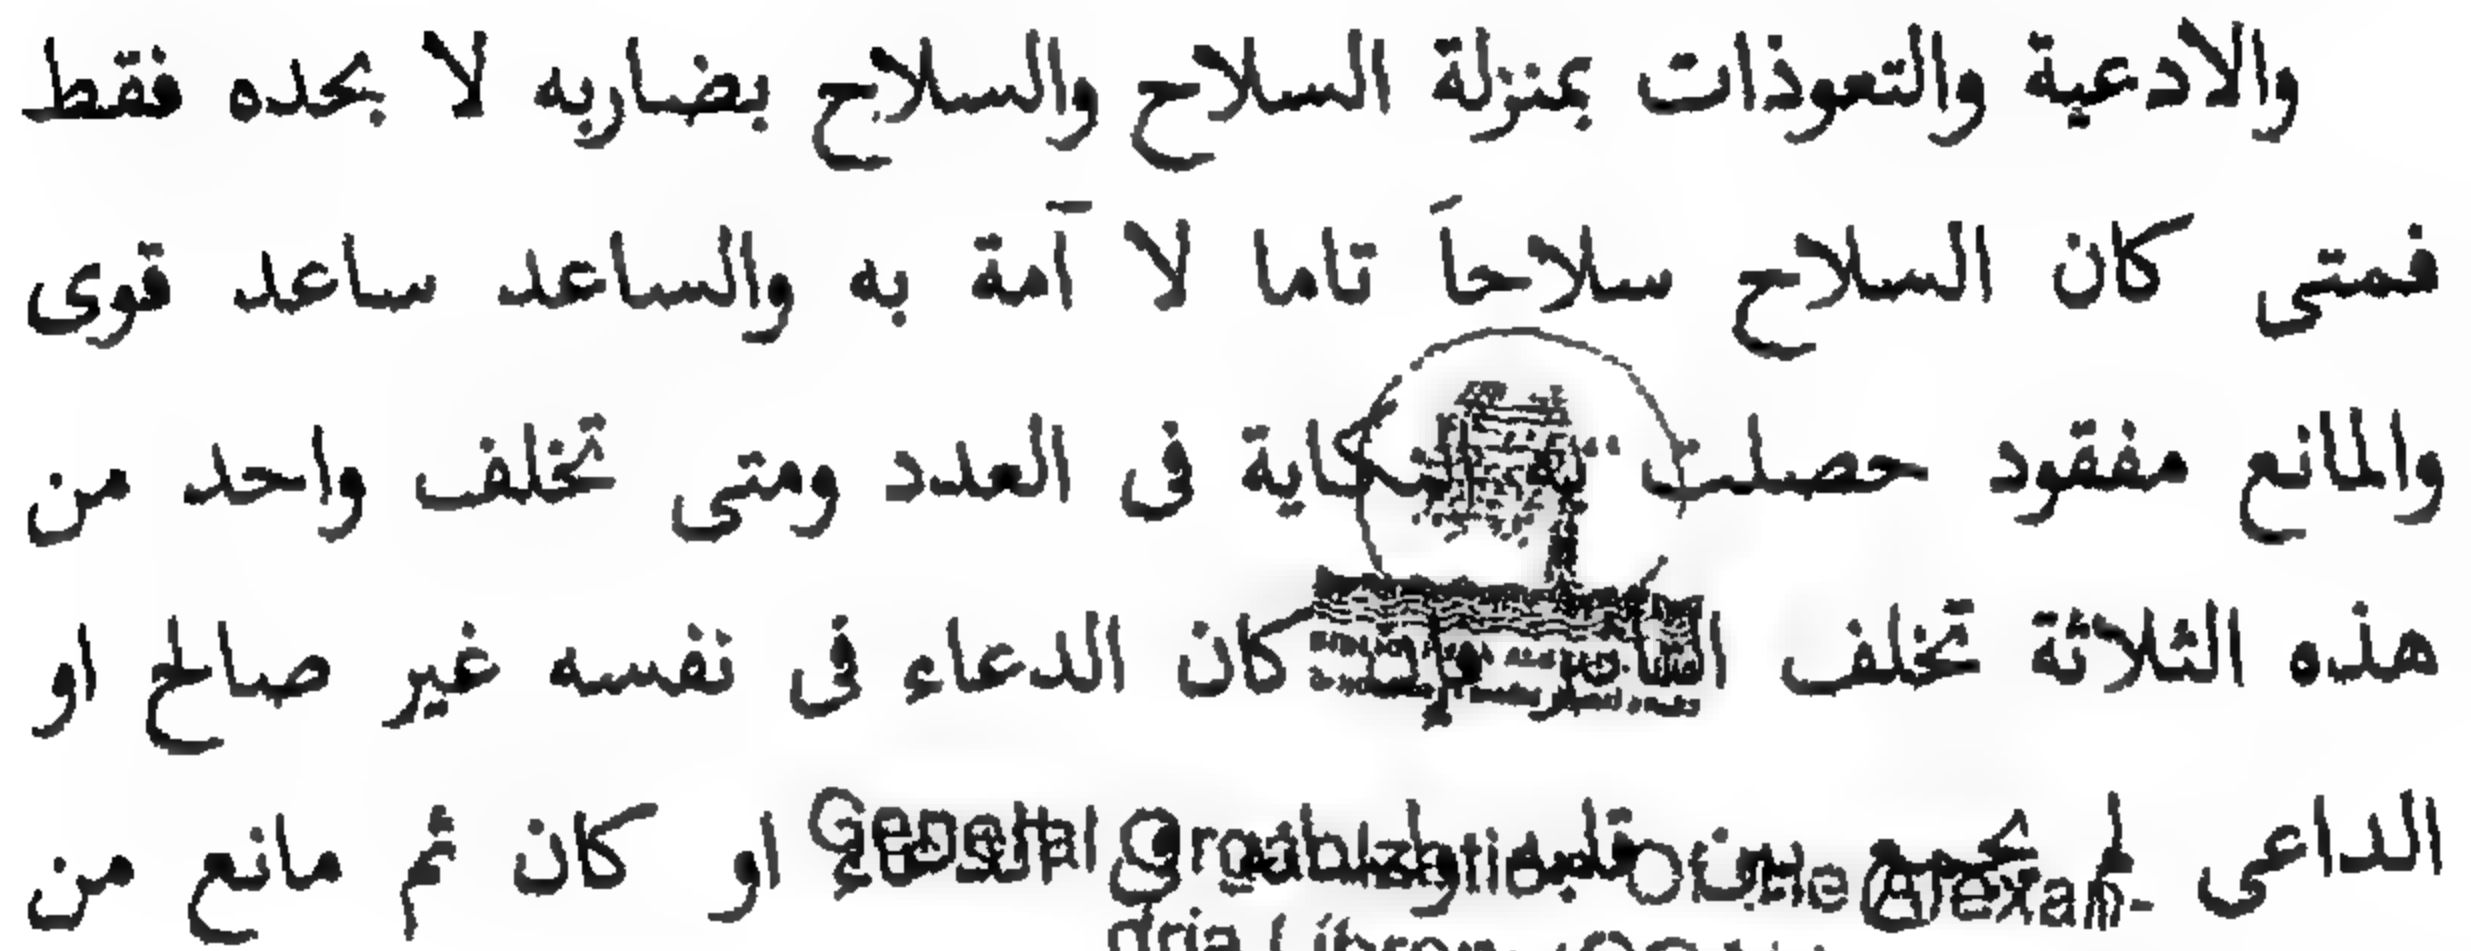 والادعية والتعوذات بمنزلة السلاح والسلاح بضاربه لا بحده فقط
فمتى كان السلاح سلاحاَ تاما لا آمة به والساعد ساعد قوى
والمانع مفقود حصلت به النكاية فى العدد ومتى تخلف واحد من
هذه الثلاثة تخلف التأثير فإن كان الدعاء فى نفسه غير صالح او
الداعى لم يجمع بين قلبه ولسانه فى الدعاء او كان ثم مانع من
General Organization Of the Alexan-
dria Library